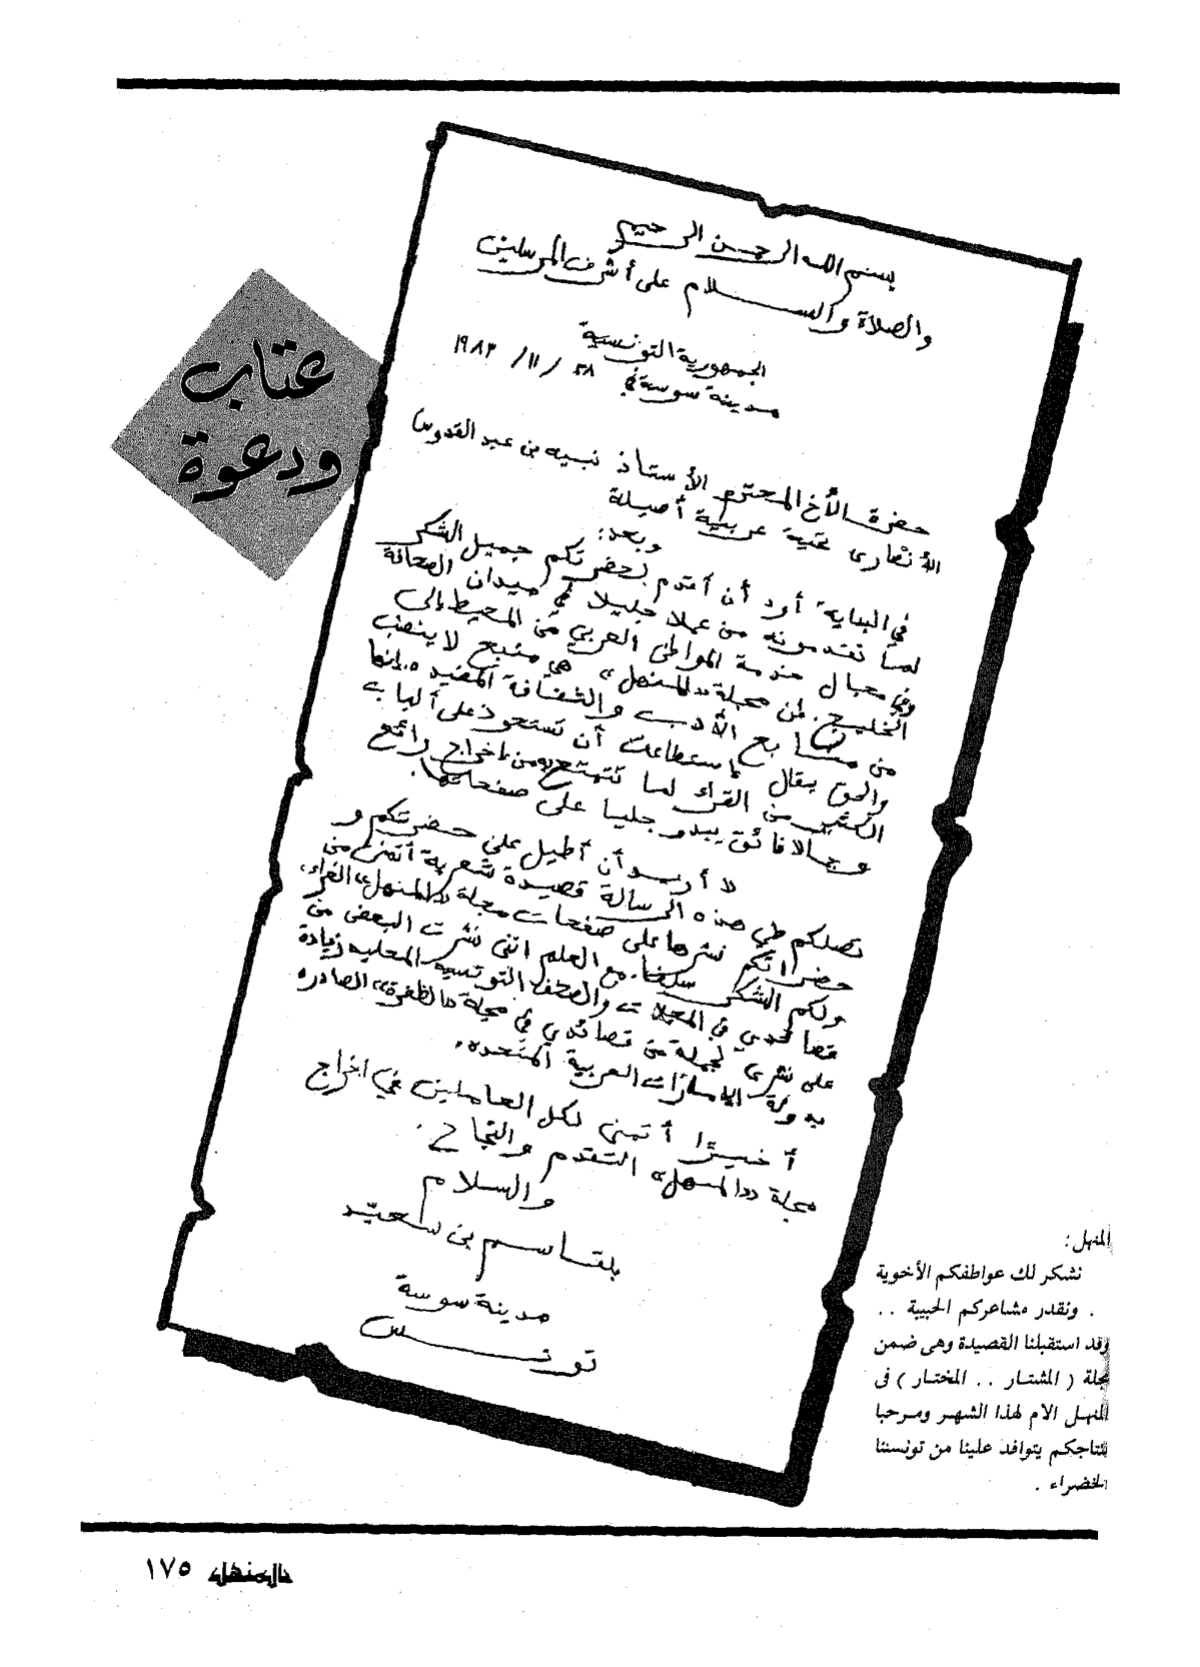 عتاب
ودعوة
بسم الله الرحمن الرحيم
والصلاة والسلام على أشرف المرسلين
الجمهورية التونسية
مدينة سوسة في ٢٨ / ١١ / ١٩٨٣
حضرة الأخ المحترم الأستاذ نبيه بن عبد القدوس
الأنصارى تحية عربية أصيلة
وبعد:
في البداية أود أن أتقدم لحضرتكم جميل الشكر
لما تقدمونه من عملا جليلا في ميدان الصحافة
وفي مجال خدمة المواطن العربي من المحيط إلى
الخليج. إن مجلة «المنهل» هي منبع لا ينضب
من منابع الأدب والثقافة المفيدة. إنها
والحق يقال استطاعت أن تستحوذ على ألباب
الكثير من القراء لما تتمتع به من إخراج رائع
وجمالا فائق يبدو جليا على صفحاتها.
لا أريد أن أطيل على حضرتكم و
تصلكم طي هذه الرسالة قصيدة شعرية أتمنى من
حضراتكم نشرها على صفحات مجلة «المنهل» الغراء.
ولكم الشكر سلفا. مع العلم انني نشرت البعض من
قصائدي في المجلات والصحف التونسيه المحليه زيادة
على نشرى لجملة من قصائدي في مجلة «الظفرة» الصادره
بدولة الامارات العربية المتحده.
أخيرا أتمنى لكل العاملين في اخراج
مجلة «المنهل» التقدم والنجاح.
والسلام
بلقاسم بن سعيّد
مدينة سوسة
تونس
المنهل :
نشكر لك عواطفكم الأخوية
. ونقدر مشاعركم الحبيبة . .
وقد استقبلنا القصيدة وهى ضمن
مجلة ( المشتار . . المختار ) فى
المنهل الام لهذا الشهر ومرحبا
بنتاجكم يتوافد علينا من تونسنا
الخضراء .
المنهل ١٧٥